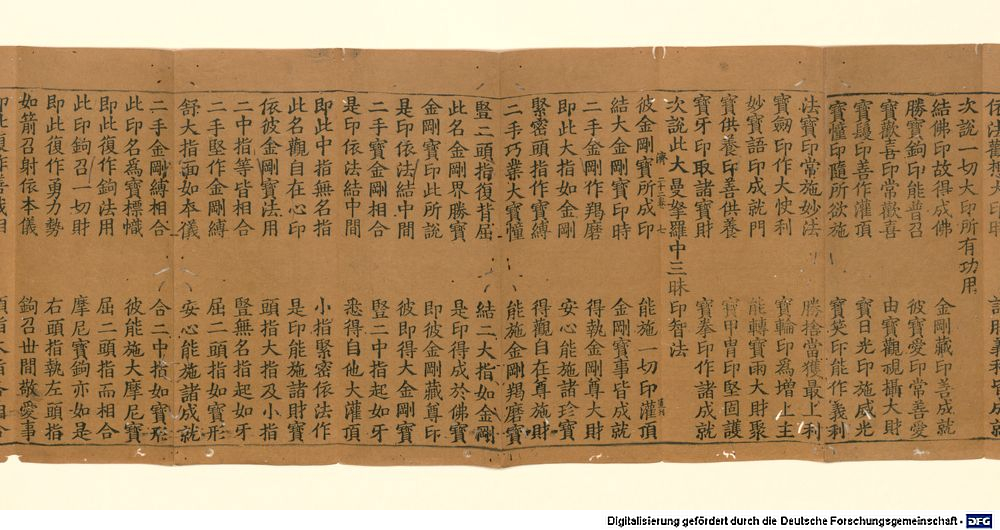 次說一切大印所有功用
結佛印故得成佛　金剛藏印善成就
勝寶鉤印能普召　彼寶愛印常善愛
寶歡喜印常歡喜　由寶觀視攝大財
寶鬘印善作灌頂　寶日光印施威光
寶幢印隨所欲施　寶笑印能作義利
法寶印常施妙法　勝捨當獲最上利
寶劔印作大快利　寶輪印爲增上主
妙寶語印成就門　能轉寶雨大財聚
寶供養印善供養　寶甲冑印堅固護
寶牙印取諸寶財　寶拳印作諸成就
次說此大曼拏羅中三昧印智法
彼金剛寶所成印　能施一切印灌頂
結大金剛寶印時　金剛寶事皆成就
二手金剛作羯磨　得執金剛尊大財
即此大指如金剛　安心能施諸珍寶
緊密頭指作寶縛　得觀自在尊施財
二手巧業大寶幢　能施金剛羯磨寶
豎二頭指復背屈　結二大指如金剛
此名金剛界勝寶　是印得成於佛寶
金剛寶印此所說　即彼金剛藏尊印
是印依法結中間　彼即得大金剛寶
二手寶金剛相合　豎二中指起如牙
是印依法結中間　悉得自他大灌頂
即此中指無名指　小指緊密依法作
此名觀自在心印　是印能施諸財寶
依彼金剛寶法用　頭指大指及小指
二中指等皆相合　豎無名指起如牙
二手堅作金剛縛　屈二頭指如寶形
舒大指面如本儀　安心能施諸成就
二手金剛縛相合　合二中指如寶形
此印名爲寶標幟　彼能施大摩尼寶
即此復作鉤法用　屈二頭指而相合
此印鉤召一切財　摩尼寶鉤亦如是
即此復作勇力勢　右頭指執左頭指
如箭召射依本儀　鉤召世間敬愛事
Digitalisierung gefördert durch die Deutsche Forschungsgemeinschaft - DFG